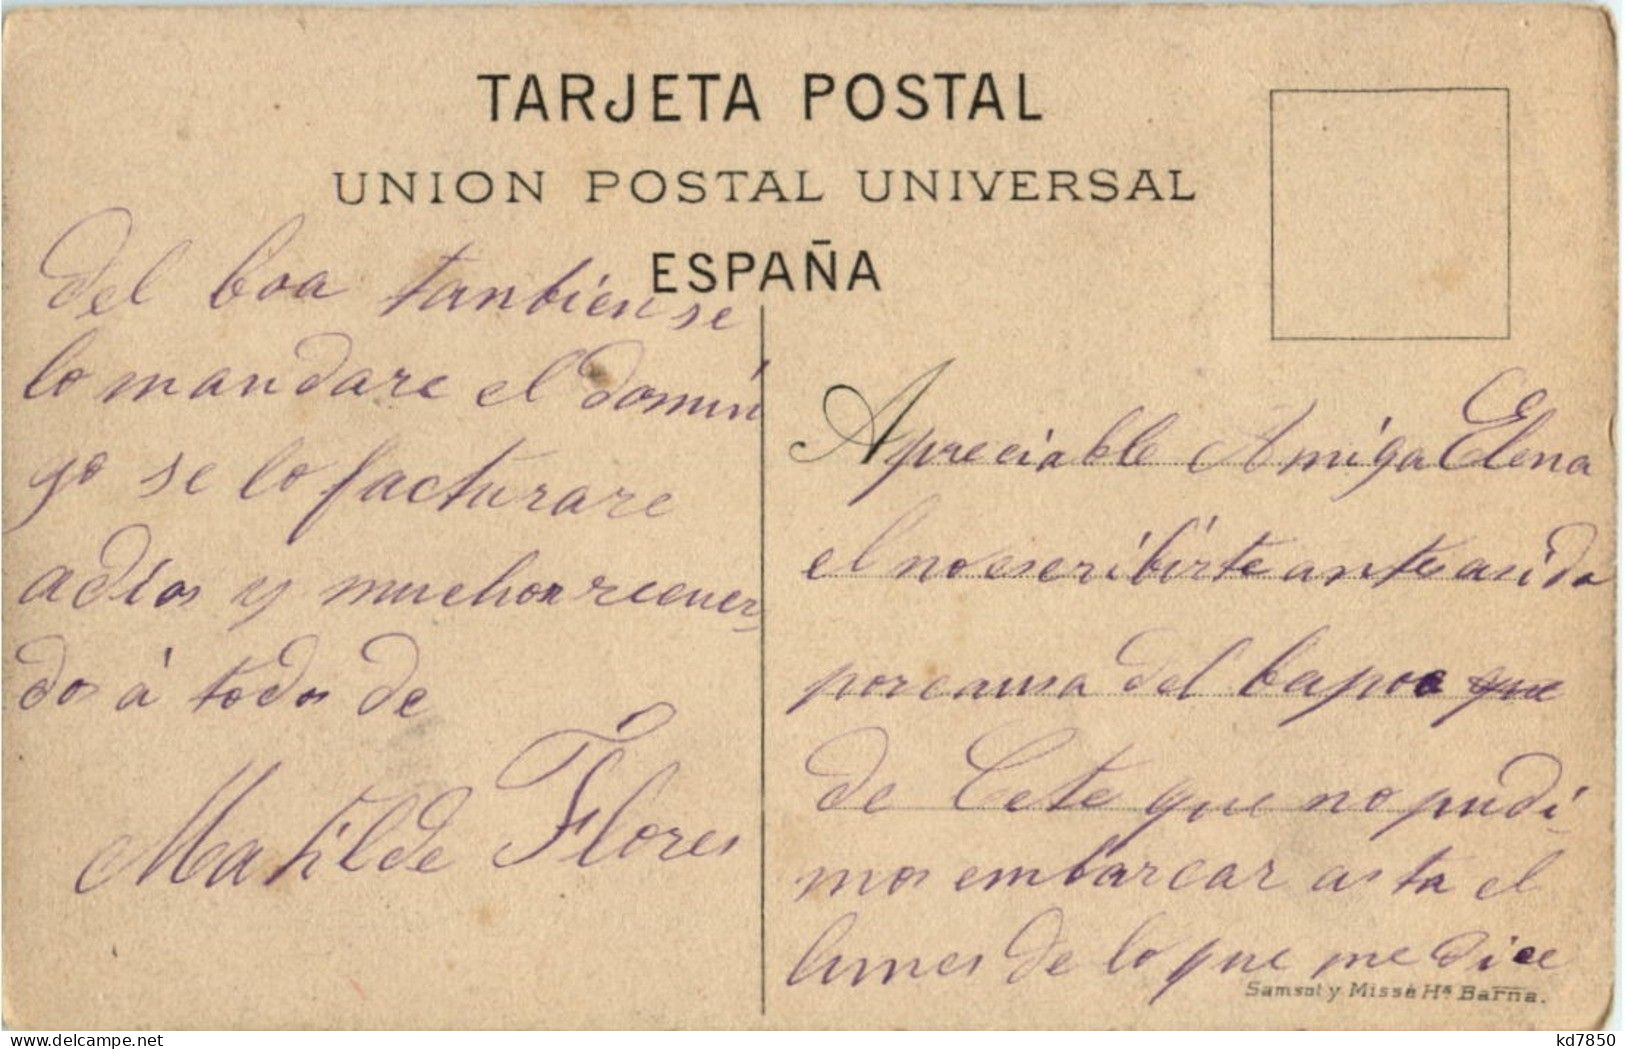 TARJETA POSTAL
UNION POSTAL UNIVERSAL
ESPAÑA
Apreciable Amiga Elena
el no escribirte antes a sido
por causa del bapor que
de Cete que no pudi
mos embarcar asta el
lunes de lo que me dice
del boa tanbien se
lo mandare el domin
go se lo facturare
adios y muchos recuer
dos á todos de
Matilde Flores
Samsot y Missé Hs Barna.
delcampe.net
kd7850